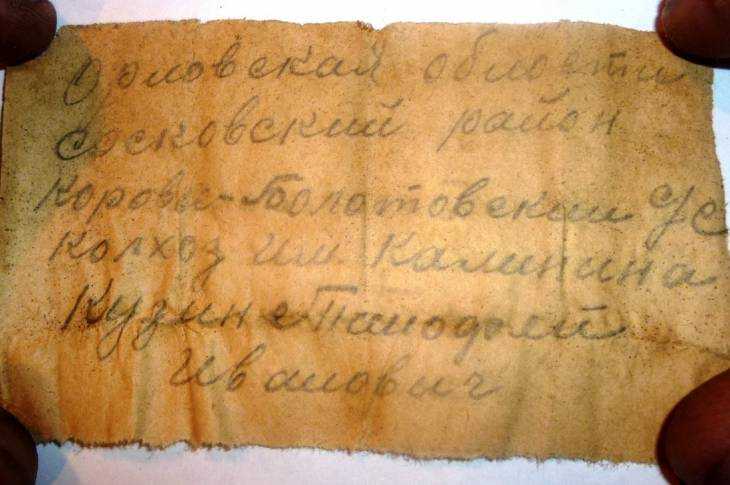 Орловская области
Сосковский район
Корови-Болотовский с/с
Колхоз им. Калинина
Кузин
Иванович